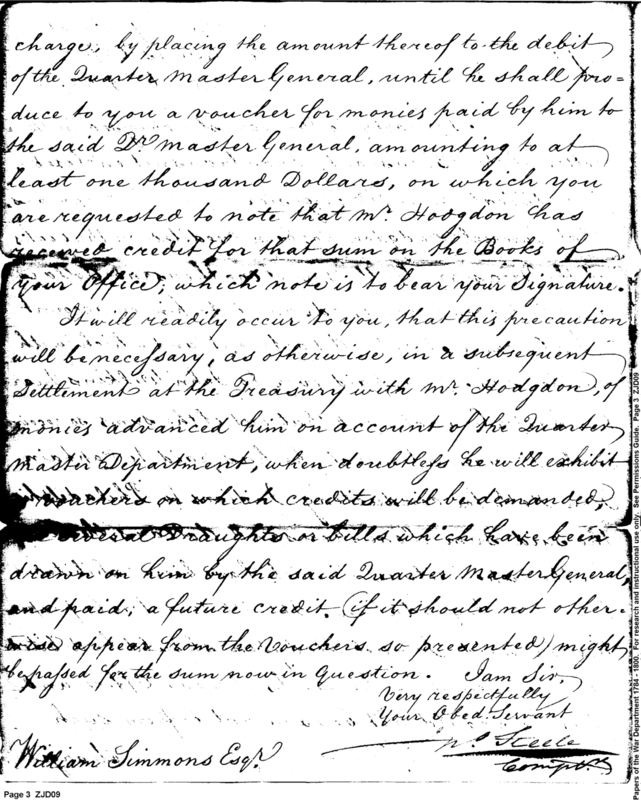 charge, by placing the amount thereof to the debit
of the Quarter Master General, until he shall pro=
duce to you a voucher for monies paid by him to
the said Qr. Master General, amounting to at
least one thousand Dollars, on which you
are requested to note that Mr. Hodgdon has
received credit for that sum on the Books of
your Office, which note is to bear your Signature.
It will readily occur to you, that this precaution
will be necessary, as otherwise, in a subsequent
Settlement at the Treasury with Mr. Hodgdon, of
monies advanced him on account of the Quarter
Master Department, when doubtless he will exhibit
vouchers on which credits will be demanded,
several Draughts or bills which have been
drawn on him by the said Quarter Master General,
and paid, a future credit (if it should not other-
wise appear from the Vouchers so presented) might
be passed for the sum now in Question. I am Sir,
Very respectfully
Your Obed. Servant
Steele
William Simmons Esqr. Compt.
Page 3 ZJD09
Papers of the War Department 1784 - 1800. For research and instructional use only. See Permissions Guide. Page 3 ZJD09